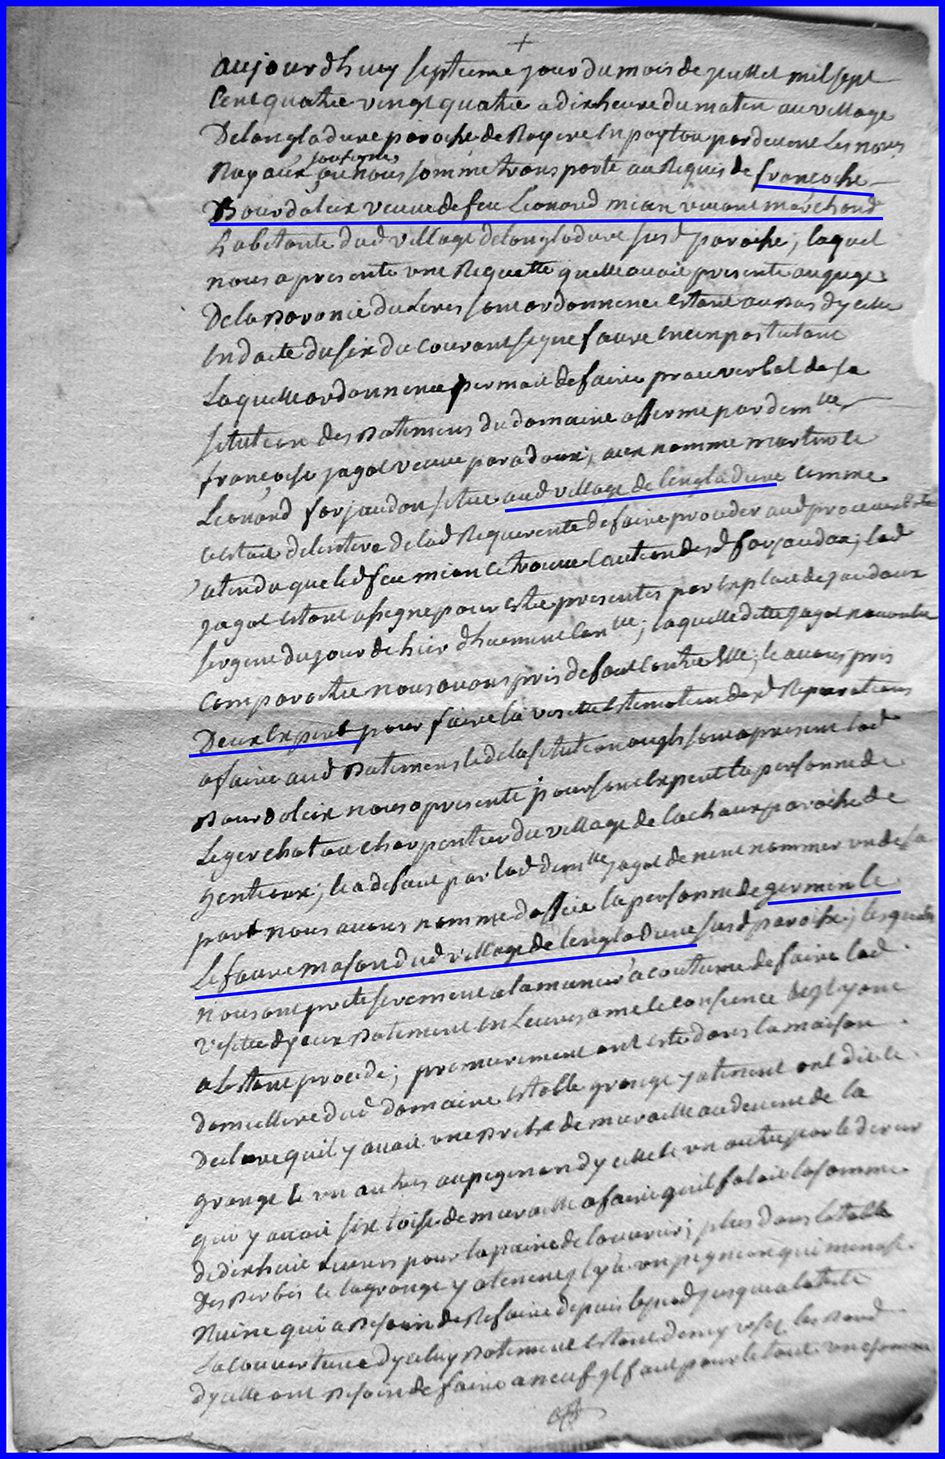 aujourdhuy septieme jour du mois de juillet mil sept
cent quatre vingt quatre a dix heure du matin au village
Delangladure paroche de Royere en poytou pardevant les nores
Royaux sousignes nous somme transporte au Requis de françoihe
Bourdaleix veuve de feu Leonard mian vivant marchand
habitante dud village delangladure susd paroche, laquel
nous a presenté une Requette quelle avoit presenté au juge
De la Baronie du Leris son ordonnence estant au bas dycelle
en date du six du courant signe faure
Laquelle ordonnence permait de faire proces verbal de la
sitution des Batimens du domaine afferme par demlle
françoise jagot veuve paradoux, aux nomme martin et
Leonard forjaudon situe aud village de Lengladure comme
estant de lentere de lad Requerente de faire proceder aud proces verbal
atendu que led feu mian ce trouve caution desd forjaudon, lad
jagot estant assigne pour estre presentes par exploit de jaudoux
sergent du jour de hier dhuemene con lle, laquelle ditte jagot
comparoitre nous avons pris defaut contre Elle, et avons pris
Deux Expert pour faire la visite estimation desd Reparations
a faire aud Batimens et de la sitution
Bourdaleix nous a presenté pour son expert la personne de
Leger chatau charpentier du village de lachaux paroihe de
gentioux, et a defaut par lad demlle jagot de nent nommer un de sa
part nous avons nomme doffice la personne de germen le
Lefaure mason dud village de lengladure susd paroihe, lesquels
nous ont prete serement a la manier acoutume de faire lad
visitte dyceux Batiment en Leurs ame et consience
abstant procede, premierement ont este dans la maison
dud domaine estable grange y atenent ont dit et
Declare quil y avoit une Briche de muraille au devent de la
grange et un autres au pignion dycelle et un autre par le
quil y avoit six toise de muraille a faire quil faloit la somme
de dix huit Livres pour la paine de louvrier, plus dans letable
des Berbis et la grange y atenent il y a un pignion qui menase
Ruine qui a Besoin de Refaire depuis le pied jusque a la tete
La couverture dyceluy Batiment estant demy usé les Bord
dycelle ont Besoin de faire a neuf il faut pour le tout